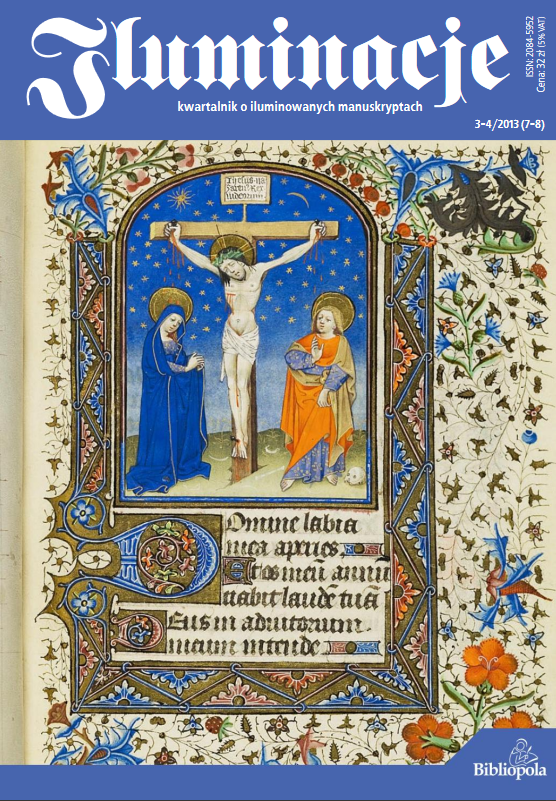 Iluminacje
kwartalnik o iluminowanych manuskryptach
ISSN: 2084-5952
Cena: 32 zł (5% VAT)
3-4/2013 (7-8)
rex
iudeorum
Domine labia
mea aperies
Et os meū annū
ciabit laudē tuā
Deus in adiutorium
meum intende
Bibliopola